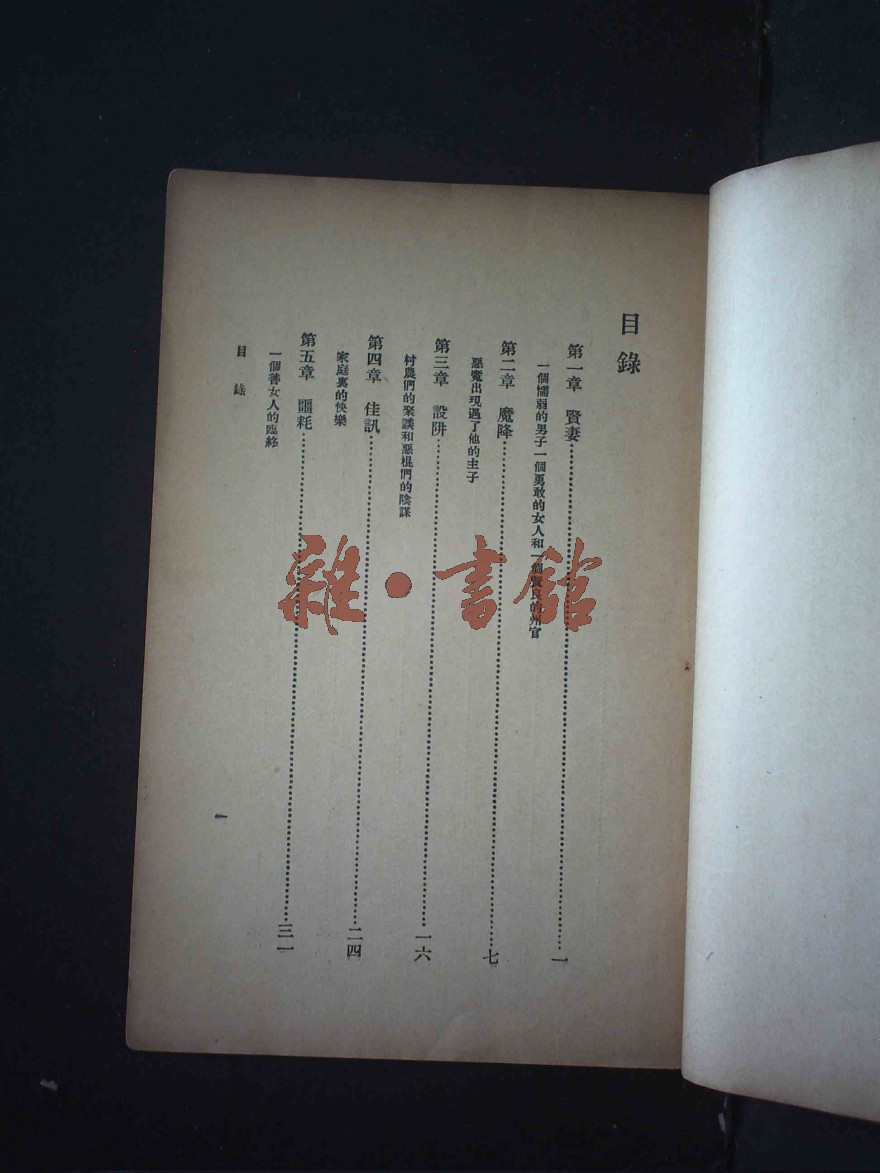 目錄
第一章 賢妻……一
一個懦弱的男子一個勇敢的女人和一個賢良的州官
第二章 魔降……七
惡魔出現遇了他的主子
第三章 設阱……一六
村農們的聚談和惡棍們的陰謀
第四章 佳訊……二四
家庭裏的快樂
第五章 噩耗……三一
一個善女人的臨終
目錄
一
雜·書館